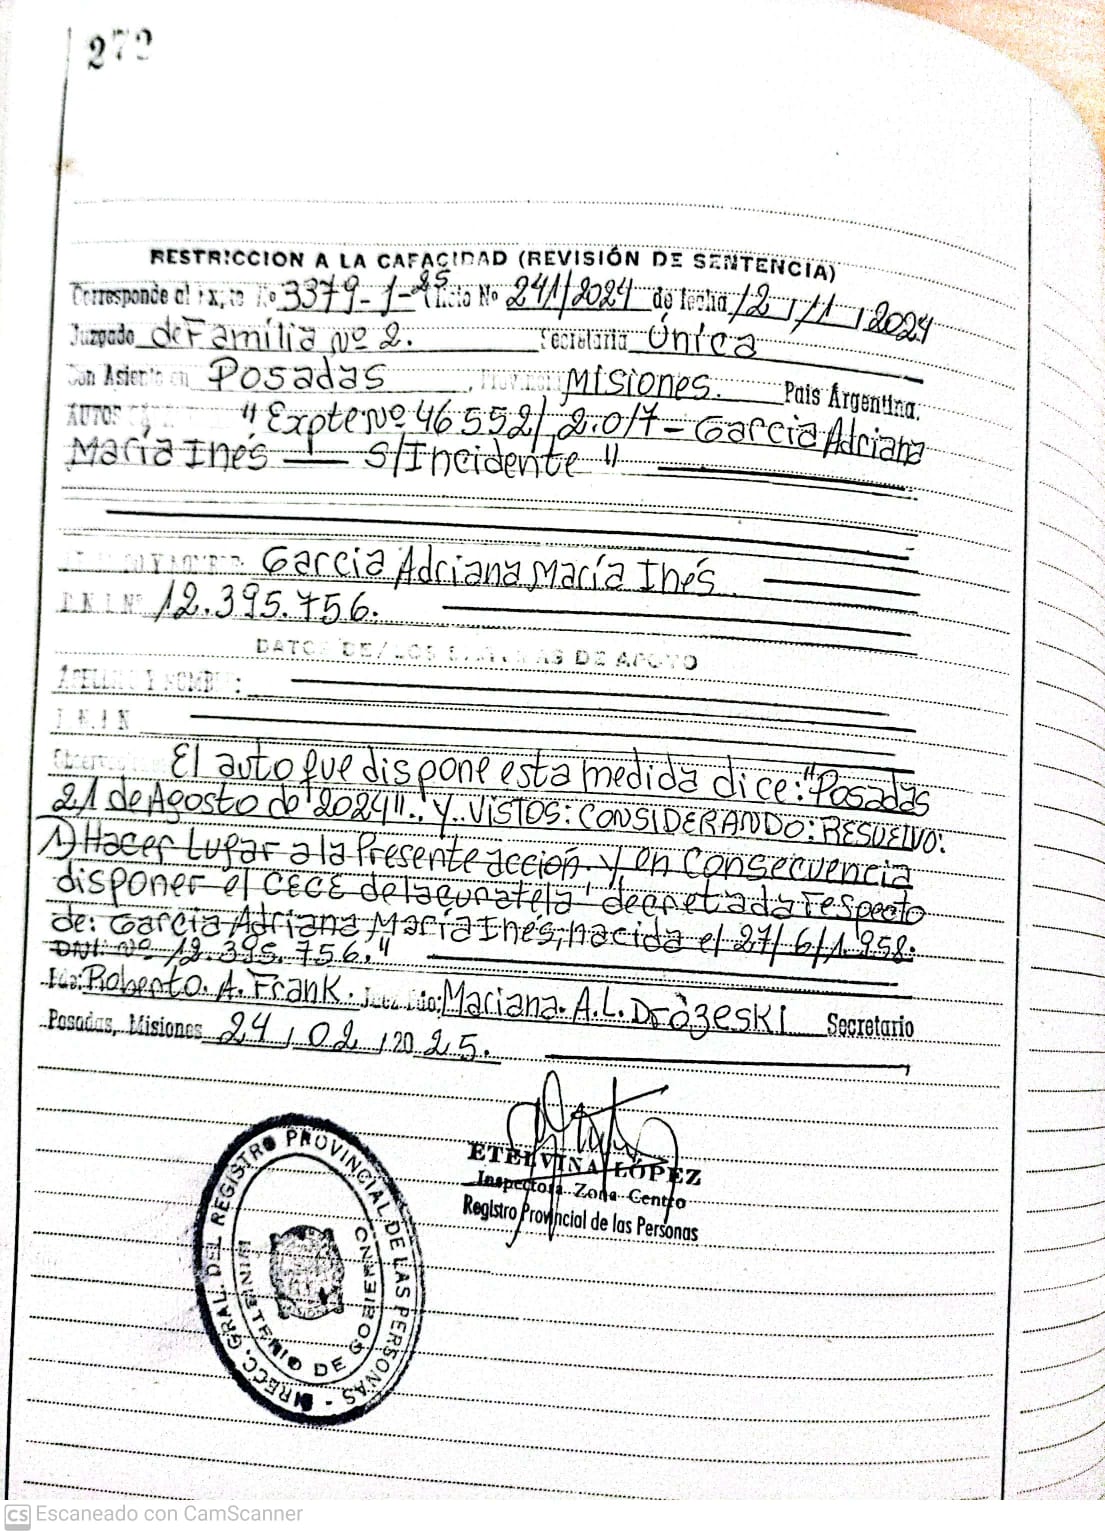 272
RESTRICCION A LA CAPACIDAD (REVISIÓN DE SENTENCIA)
Corresponde al Expte No 3379-1-25 Oficio No 241/2024 de fecha 12/11/2024
Juzgado de Familia Nº 2. Secretaria Única
Con Asiento en Posadas, Provincia Misiones. Pais Argentina.
AUTOS "Expte Nº 46552/2.017 - Garcia Adriana
María Inés — S/Incidente"
Y NOMBRE Garcia Adriana María Inés
D.N.I Nº 12.395.756.
DATOS DE/LOS DE APOYO
APELLIDO Y NOMBRE:
D.N.I N
Observaciones El auto que dispone esta medida dice: "Posadas
21 de Agosto de 2024".. Y VISTOS: CONSIDERANDO: RESUELVO:
1) Hacer Lugar a la Presente acción y en Consecuencia
disponer el CECE de la curatela decretada respecto
de: Garcia Adriana María Inés, nacida el 27/6/1.958.
DNI. Nº 12.395.756."
Fdo: Roberto. A. Frank. Juez Fdo: Mariana. A.L. Dròzeski Secretario
Posadas, Misiones 24/02/2025.
ETELVINA LÓPEZ
Inspectora Zona Centro
Registro Provincial de las Personas
DIRECC. GRAL. DEL REGISTRO PROVINCIAL DE LAS PERSONAS -
MINISTERIO DE GOBIERNO
CS Escaneado con CamScanner